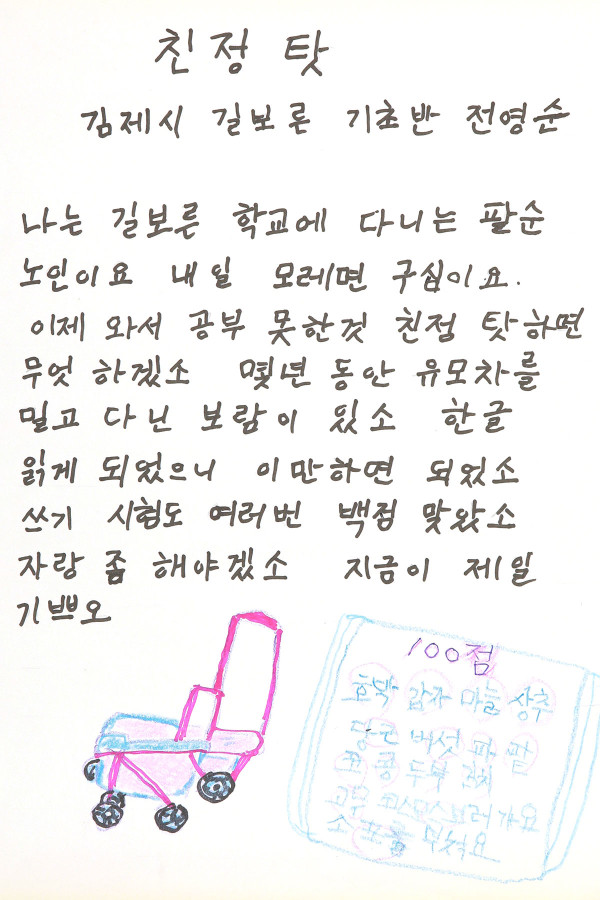 친정 탓
김제시 길보른 기초반 전영순
나는 길보른 학교에 다니는 팔순
노인이요 내일 모레면 구십이요.
이제 와서 공부 못한것 친정 탓하면
무엇 하겠소 몇년 동안 유모차를
밀고 다닌 보람이 있소 한글
읽게 되었으니 이만하면 되었소
쓰기 시험도 여러번 백점 맞았소
자랑 좀 해야겠소 지금이 제일
기쁘오
100점
호박 감자 마늘 상추
당근 버섯 파 팥
콩 두부
고무 코스모스 보러 가요
소포를